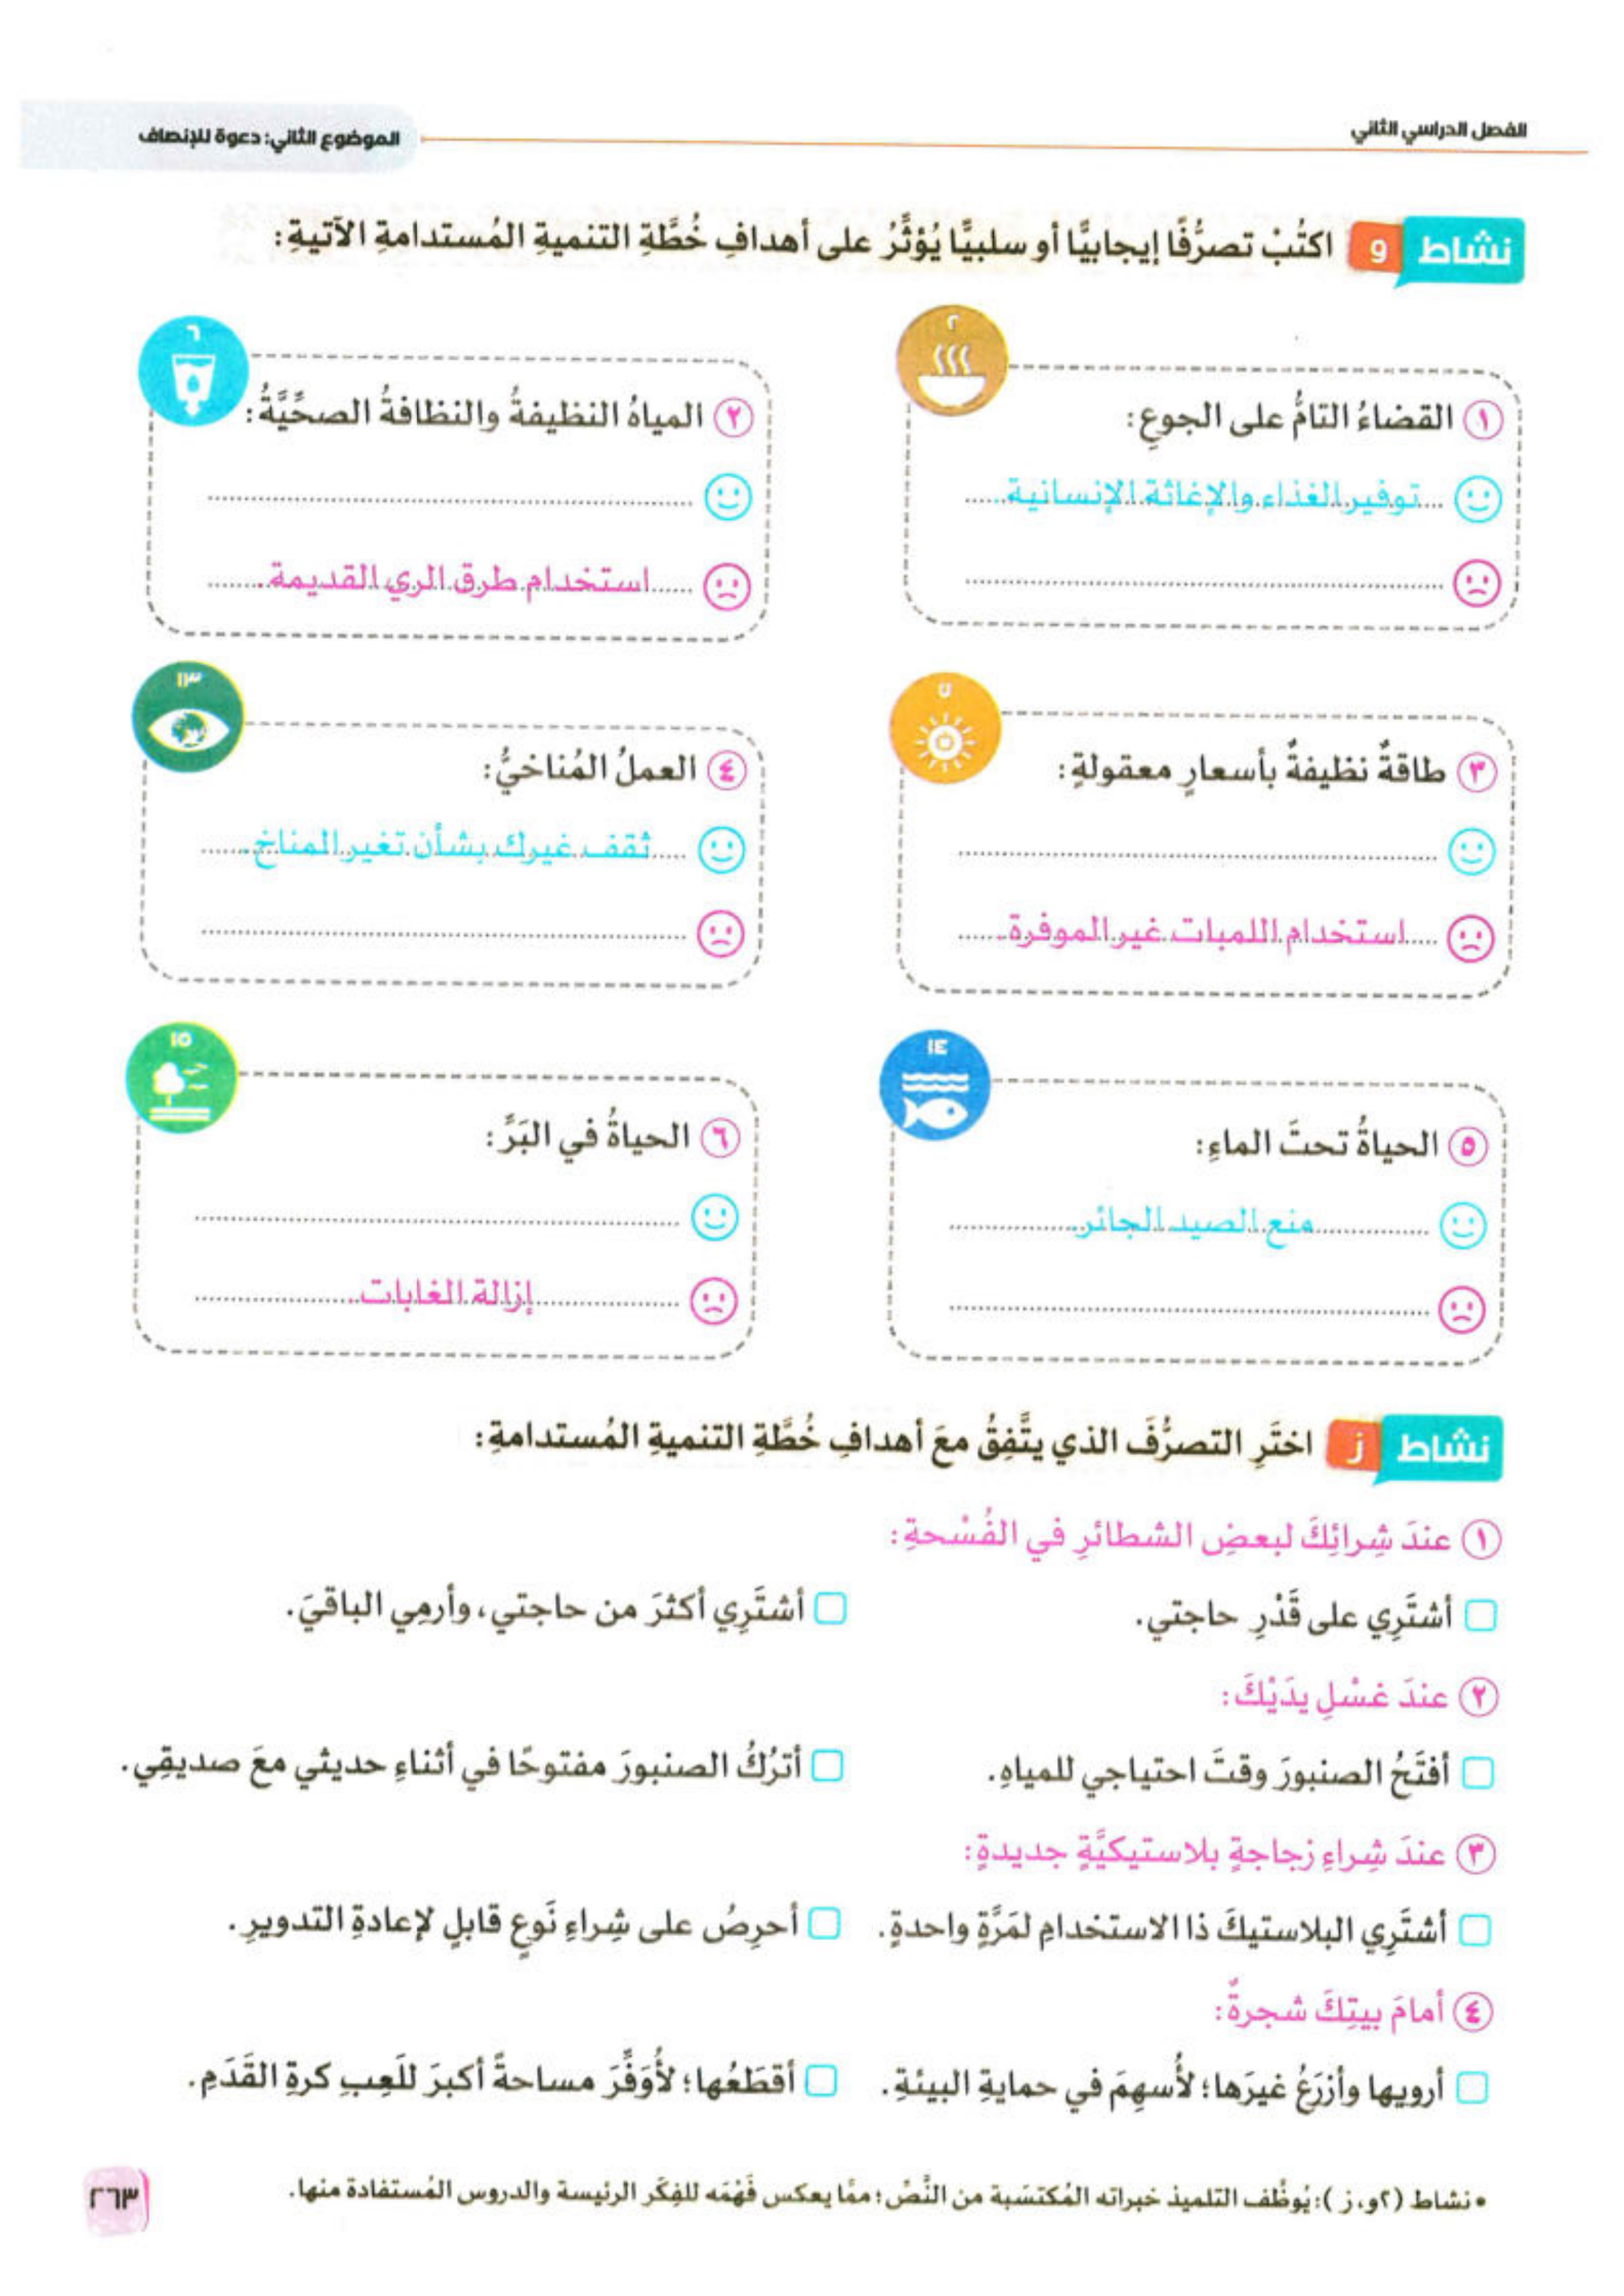 الفصل الدراسي الثاني
الموضوع الثاني: دعوة للإنصاف
نشاط و اكتُبْ تصرُّفًا إيجابيًّا أو سلبيًّا يُؤثِّرُ على أهدافِ خُطَّةِ التنميةِ المُستدامةِ الآتيةِ:
٢
١ القضاءُ التامُّ على الجوعِ:
توفير الغذاء والإغاثة الإنسانية.
٦
٢ المياهُ النظيفةُ والنظافةُ الصحِّيَّةُ:
استخدام طرق الري القديمة.
٧
٣ طاقةٌ نظيفةٌ بأسعارٍ معقولةٍ:
استخدام اللمبات غير الموفرة.
١٣
٤ العملُ المُناخيُّ:
ثقف غيرك بشأن تغير المناخ.
١٤
٥ الحياةُ تحتَ الماءِ:
منع الصيد الجائر.
١٥
٦ الحياةُ في البَرِّ:
إزالة الغابات.
نشاط ز اختَرِ التصرُّفَ الذي يتَّفِقُ معَ أهدافِ خُطَّةِ التنميةِ المُستدامةِ:
١ عندَ شِرائِكَ لبعضِ الشطائرِ في الفُسْحةِ:
أشتَرِي على قَدْرِ حاجتي.
أشتَرِي أكثرَ من حاجتي، وأرمِي الباقيَ.
٢ عندَ غسْلِ يدَيْكَ:
أفتَحُ الصنبورَ وقتَ احتياجي للمياهِ.
أترُكُ الصنبورَ مفتوحًا في أثناءِ حديثي معَ صديقِي.
٣ عندَ شِراءِ زجاجةٍ بلاستيكيَّةٍ جديدةٍ:
أشتَرِي البلاستيكَ ذا الاستخدامِ لمَرَّةٍ واحدةٍ.
أحرِصُ على شِراءِ نَوعٍ قابلٍ لإعادةِ التدويرِ.
٤ أمامَ بيتِكَ شجرةٌ:
أرويها وأزرَعُ غيرَها؛ لأُسهِمَ في حمايةِ البيئةِ.
أقطَعُها؛ لأُوَفِّرَ مساحةً أكبرَ للَعِبِ كرةِ القَدَمِ.
• نشاط (٢و، ز): يُوظِّف التلميذ خبراته المُكتسَبة من النَّصِّ؛ ممَّا يعكس فَهْمَه للفِكَر الرئيسة والدروس المُستفادة منها.
٢٦٣